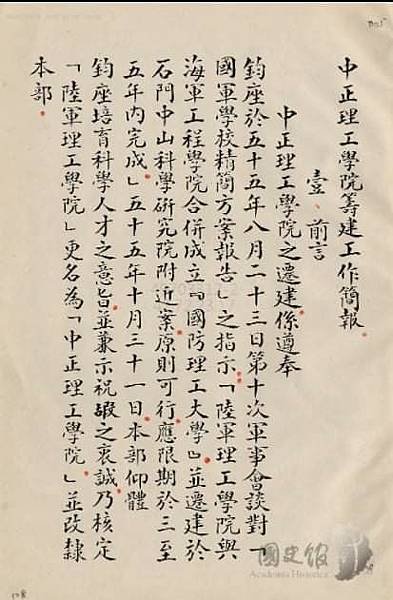 中正理工學院籌建工作簡報
壹、前言
中正理工學院之遷建係遵奉
鈞座於五十五年八月二十三日第十次軍事會談對「
國軍學校精簡方案報告」之指示：「陸軍理工學院與
海軍工程學院合併成立『國防理工大學』並遷建於
石門中山科學研究院附近案原則可行應限期於三至
五年內完成」五十五年十月三十一日本部仰體
鈞座培育科學人才之意旨並兼示祝嘏之衷誠乃核定
「陸軍理工學院」更名為「中正理工學院」並改隸
本部。
國史館
Academia Historica